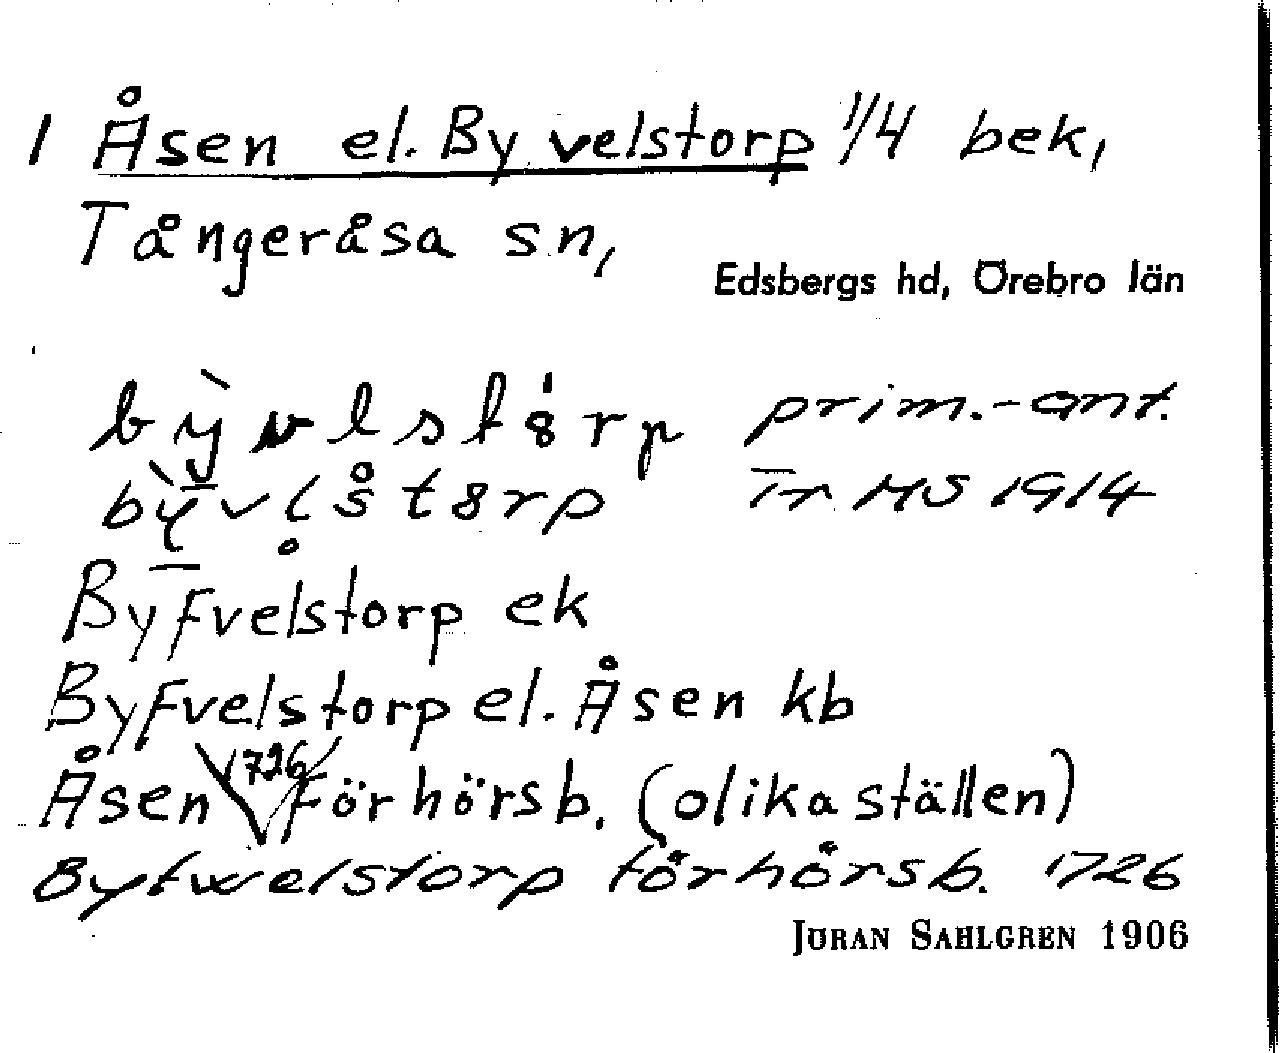 1 Åsen el. By velstorp 1/4 bek,
Tångeråsa sn,
Edsbergs hd, Örebro län
by̍̀vlstȣ́rp prim.-ant.
bỳ̠vls̊tȣrp HS 1914
Byfvelstorp ek
Byfvelstorp el. Åsen kb
Åsen 1726 Förhörsb. (olika ställen)
Byfwelstorp förhörsb. 1726
JÖRAN SAHLGREN 1906